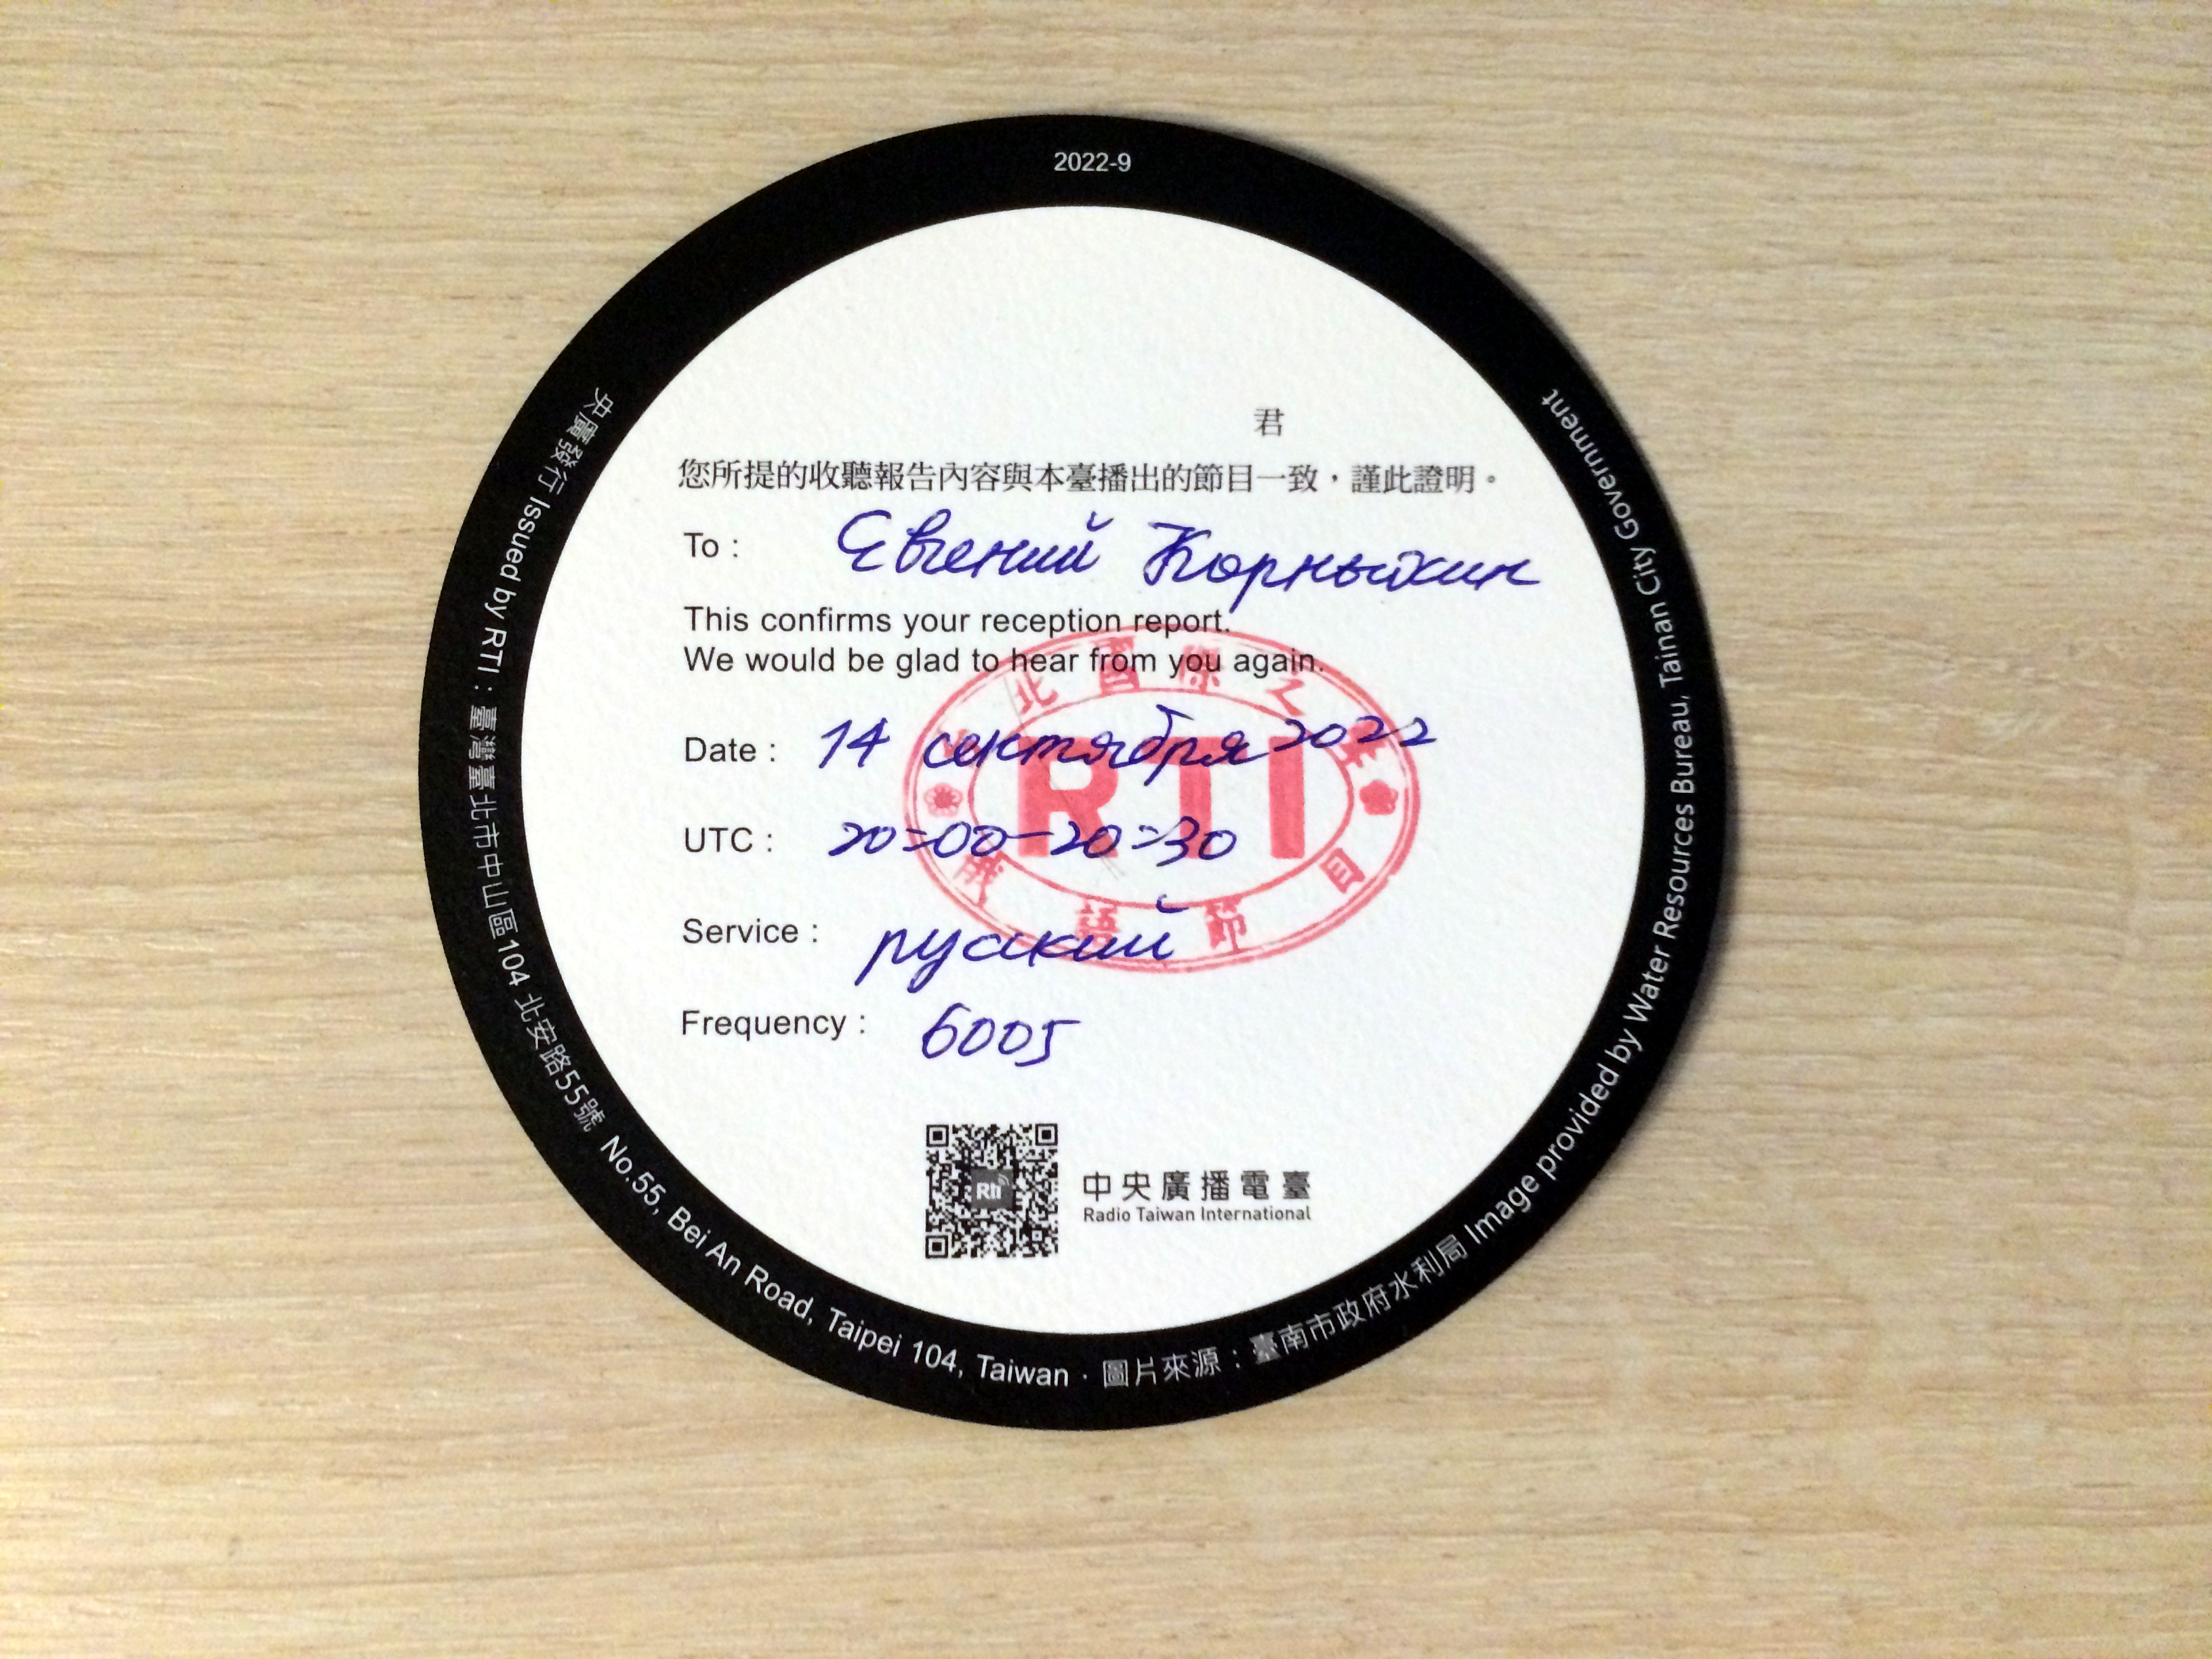 2022-9
君
您所提的收聽報告內容與本臺播出的節目一致，謹此證明。
To : Евгений Корныхин
This confirms your reception report.
We would be glad to hear from you again.
Date : 14 сентября 2022
UTC : 20:00-20:30
Service : русский
Frequency : 6005
北國際之聲
RTI
俄語節目
Rti
中央廣播電臺
Radio Taiwan International
央廣發行 Issued by RTI : 臺灣臺北市中山區104 北安路55號 No.55, Bei An Road, Taipei 104, Taiwan · 圖片來源 : 臺南市政府水利局 Image provided by Water Resources Bureau, Tainan City Government